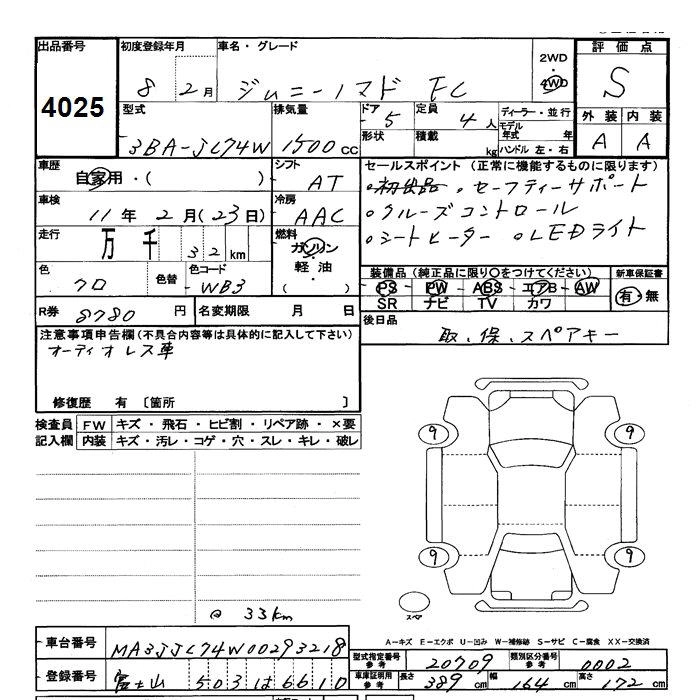 出品番号 初度登録年月 車名・グレード 2WD 評価点
4025 8 2月 ジムニーノマド FC ・ 4WD S
型式 排気量 ドア 定員 ディーラー・並行 外装 内装
3BA-JC74W 1500cc 5 4人 モデル年式 年 A A
形状 積載 kg ハンドル 左・右
車歴 シフト セールスポイント (正常に機能するものに限ります)
自家用・( ) AT ・初出品 ・セーフティーサポート
車検 冷房 ・クルーズコントロール
11年 2月(23日) AAC ・シートヒーター ・LEDライト
走行 燃料
万 千 32km ガソリン・軽油・( )
色 色替 色コード 装備品(純正品に限り○をつけてください) 新車保証書
クロ WB3 PS PW ABS エアB AW 有・無
SR ナビ TV カワ
R券 8780円 名変期限 月 日 後日品
取、保、スペアキー
注意事項申告欄(不具合内容等は具体的に記入して下さい)
オーディオレス車
修復歴 有 〔箇所 〕
検査員 FW キズ・飛石・ヒビ割・リペア跡・×要
記入欄 内装 キズ・汚レ・コゲ・穴・スレ・キレ・破レ
9 9
9 9
スペア
@ 33km
A-キズ E-エクボ U-凹み W-補修跡 S-サビ C-腐食 XX-交換済
車台番号 MA3JJC74W00293218 型式指定番号 参考 20709 類別区分番号 参考 0002
登録番号 富士山 503 は 6610 車庫証明用 参考 長さ 389cm 幅 164cm 高さ 172cm